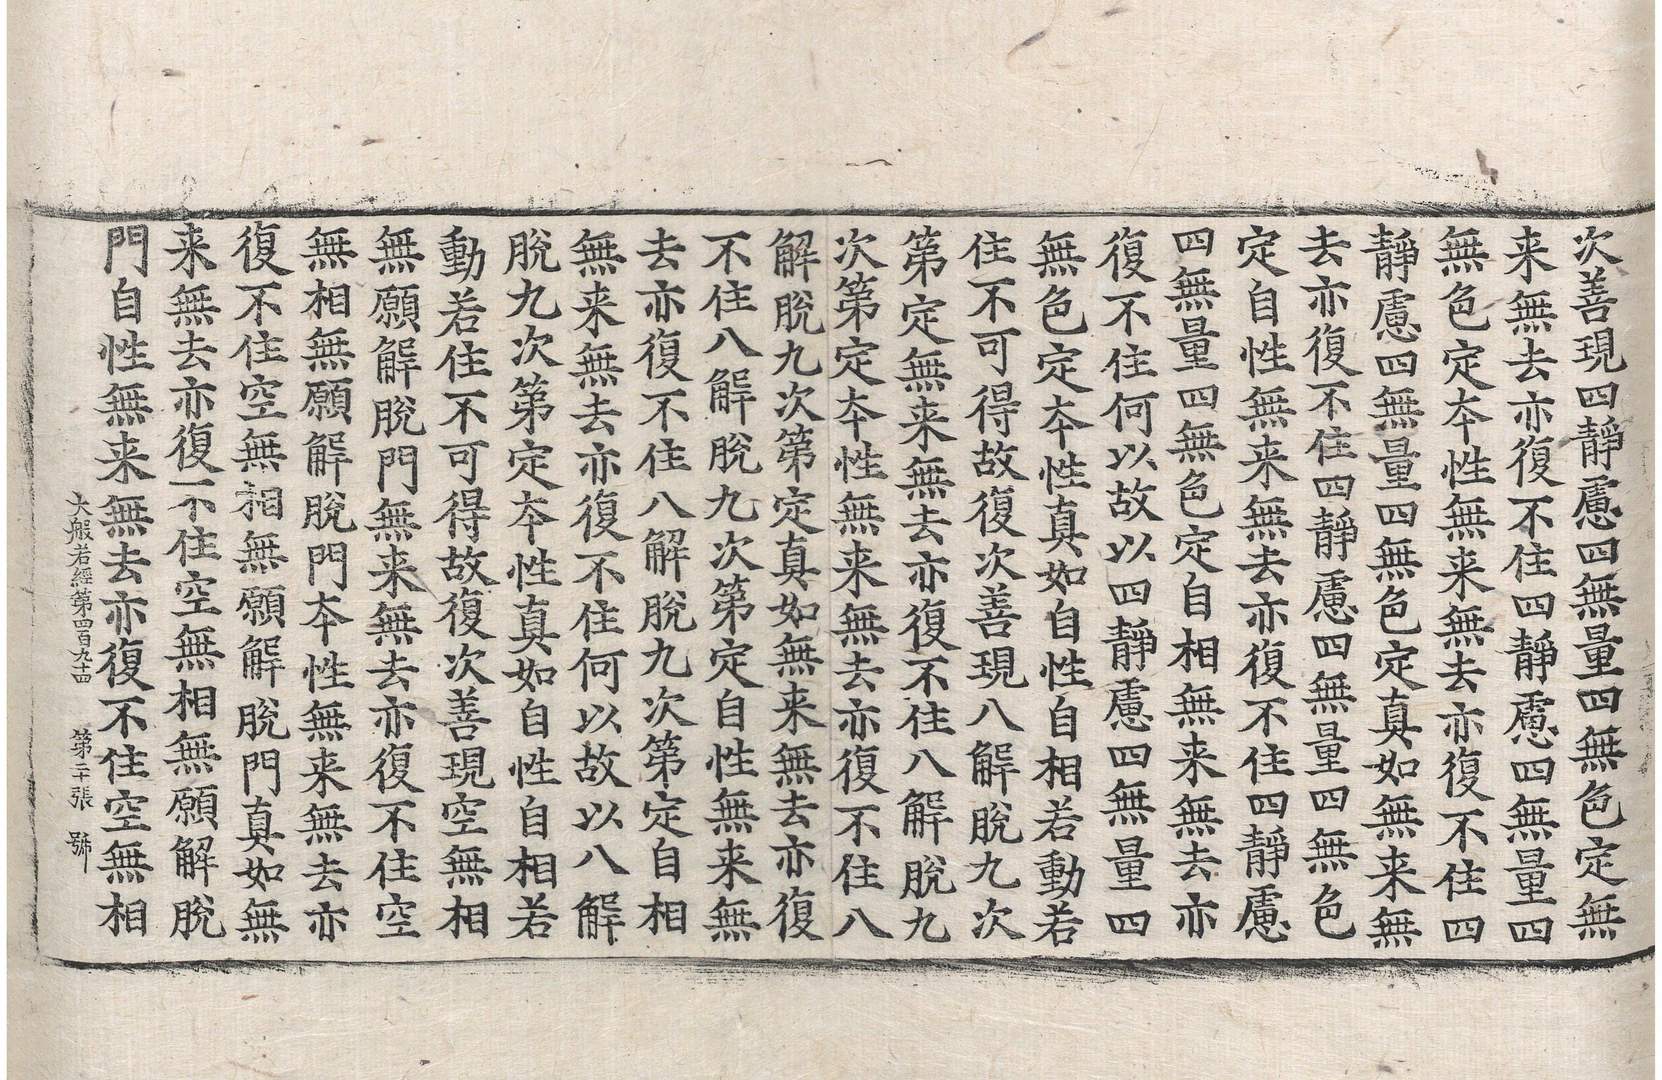 次善現四靜慮四無量四無色定無
来無去亦復不住四靜慮四無量四
無色定夲性無来無去亦復不住四
靜慮四無量四無色定真如無来無
去亦復不住四靜慮四無量四無色
定自性無来無去亦復不住四靜慮
四無量四無色定自相無来無去亦
復不住何以故以四靜慮四無量四
無色定夲性真如自性自相若動若
住不可得故復次善現八解脫九次
第定無来無去亦復不住八解脫九
次第定夲性無来無去亦復不住八
解脫九次第定真如無来無去亦復
不住八解脫九次第定自性無来無
去亦復不住八解脫九次第定自相
無来無去亦復不住何以故以八解
脫九次第定夲性真如自性自相若
動若住不可得故復次善現空無相
無願解脫門無来無去亦復不住空
無相無願解脫門夲性無来無去亦
復不住空無相無願解脫門真如無
来無去亦復不住空無相無願解脫
門自性無来無去亦復不住空無相
大般若經第四百九十四 第二十張 號